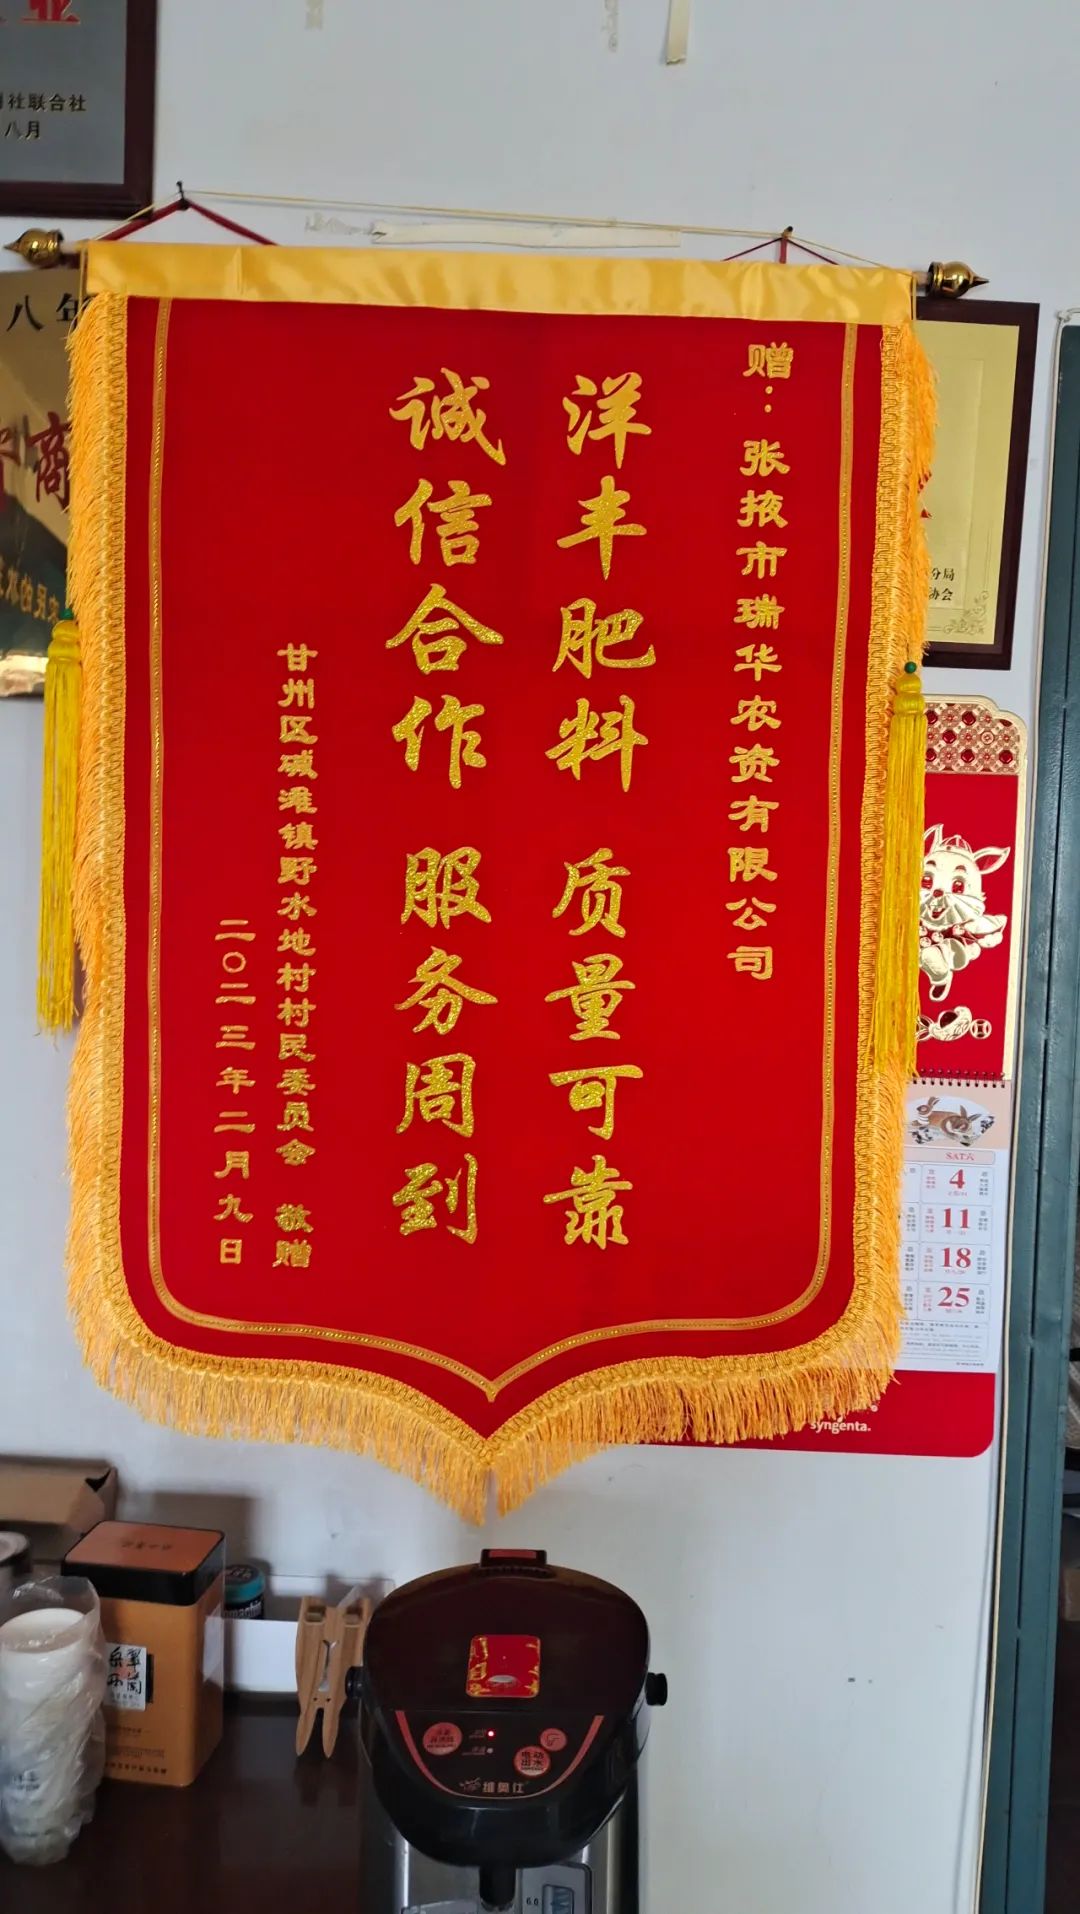 赠：张掖市瑞华农资有限公司
洋丰肥料 质量可靠
诚信合作 服务周到
甘州区碱滩镇野水地村村民委员会 敬赠
二〇二三年二月九日
社联合社
八月
八年
商
分局
协会
SAT六
4
11
18
25
syngenta
电动出水
维奥仕
6.0